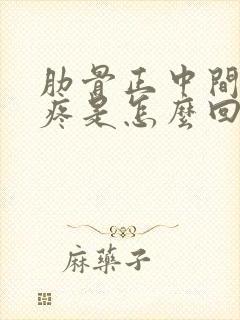 肋骨正中間
疼是怎麼回
麻藥子